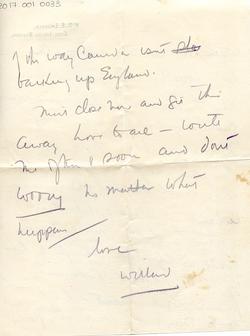 2017.001.0033
the way Canada isn't
backing up England.
Must close now and get this
away Love to all – write
me often & soon and don't
worry no matter what
happens
love